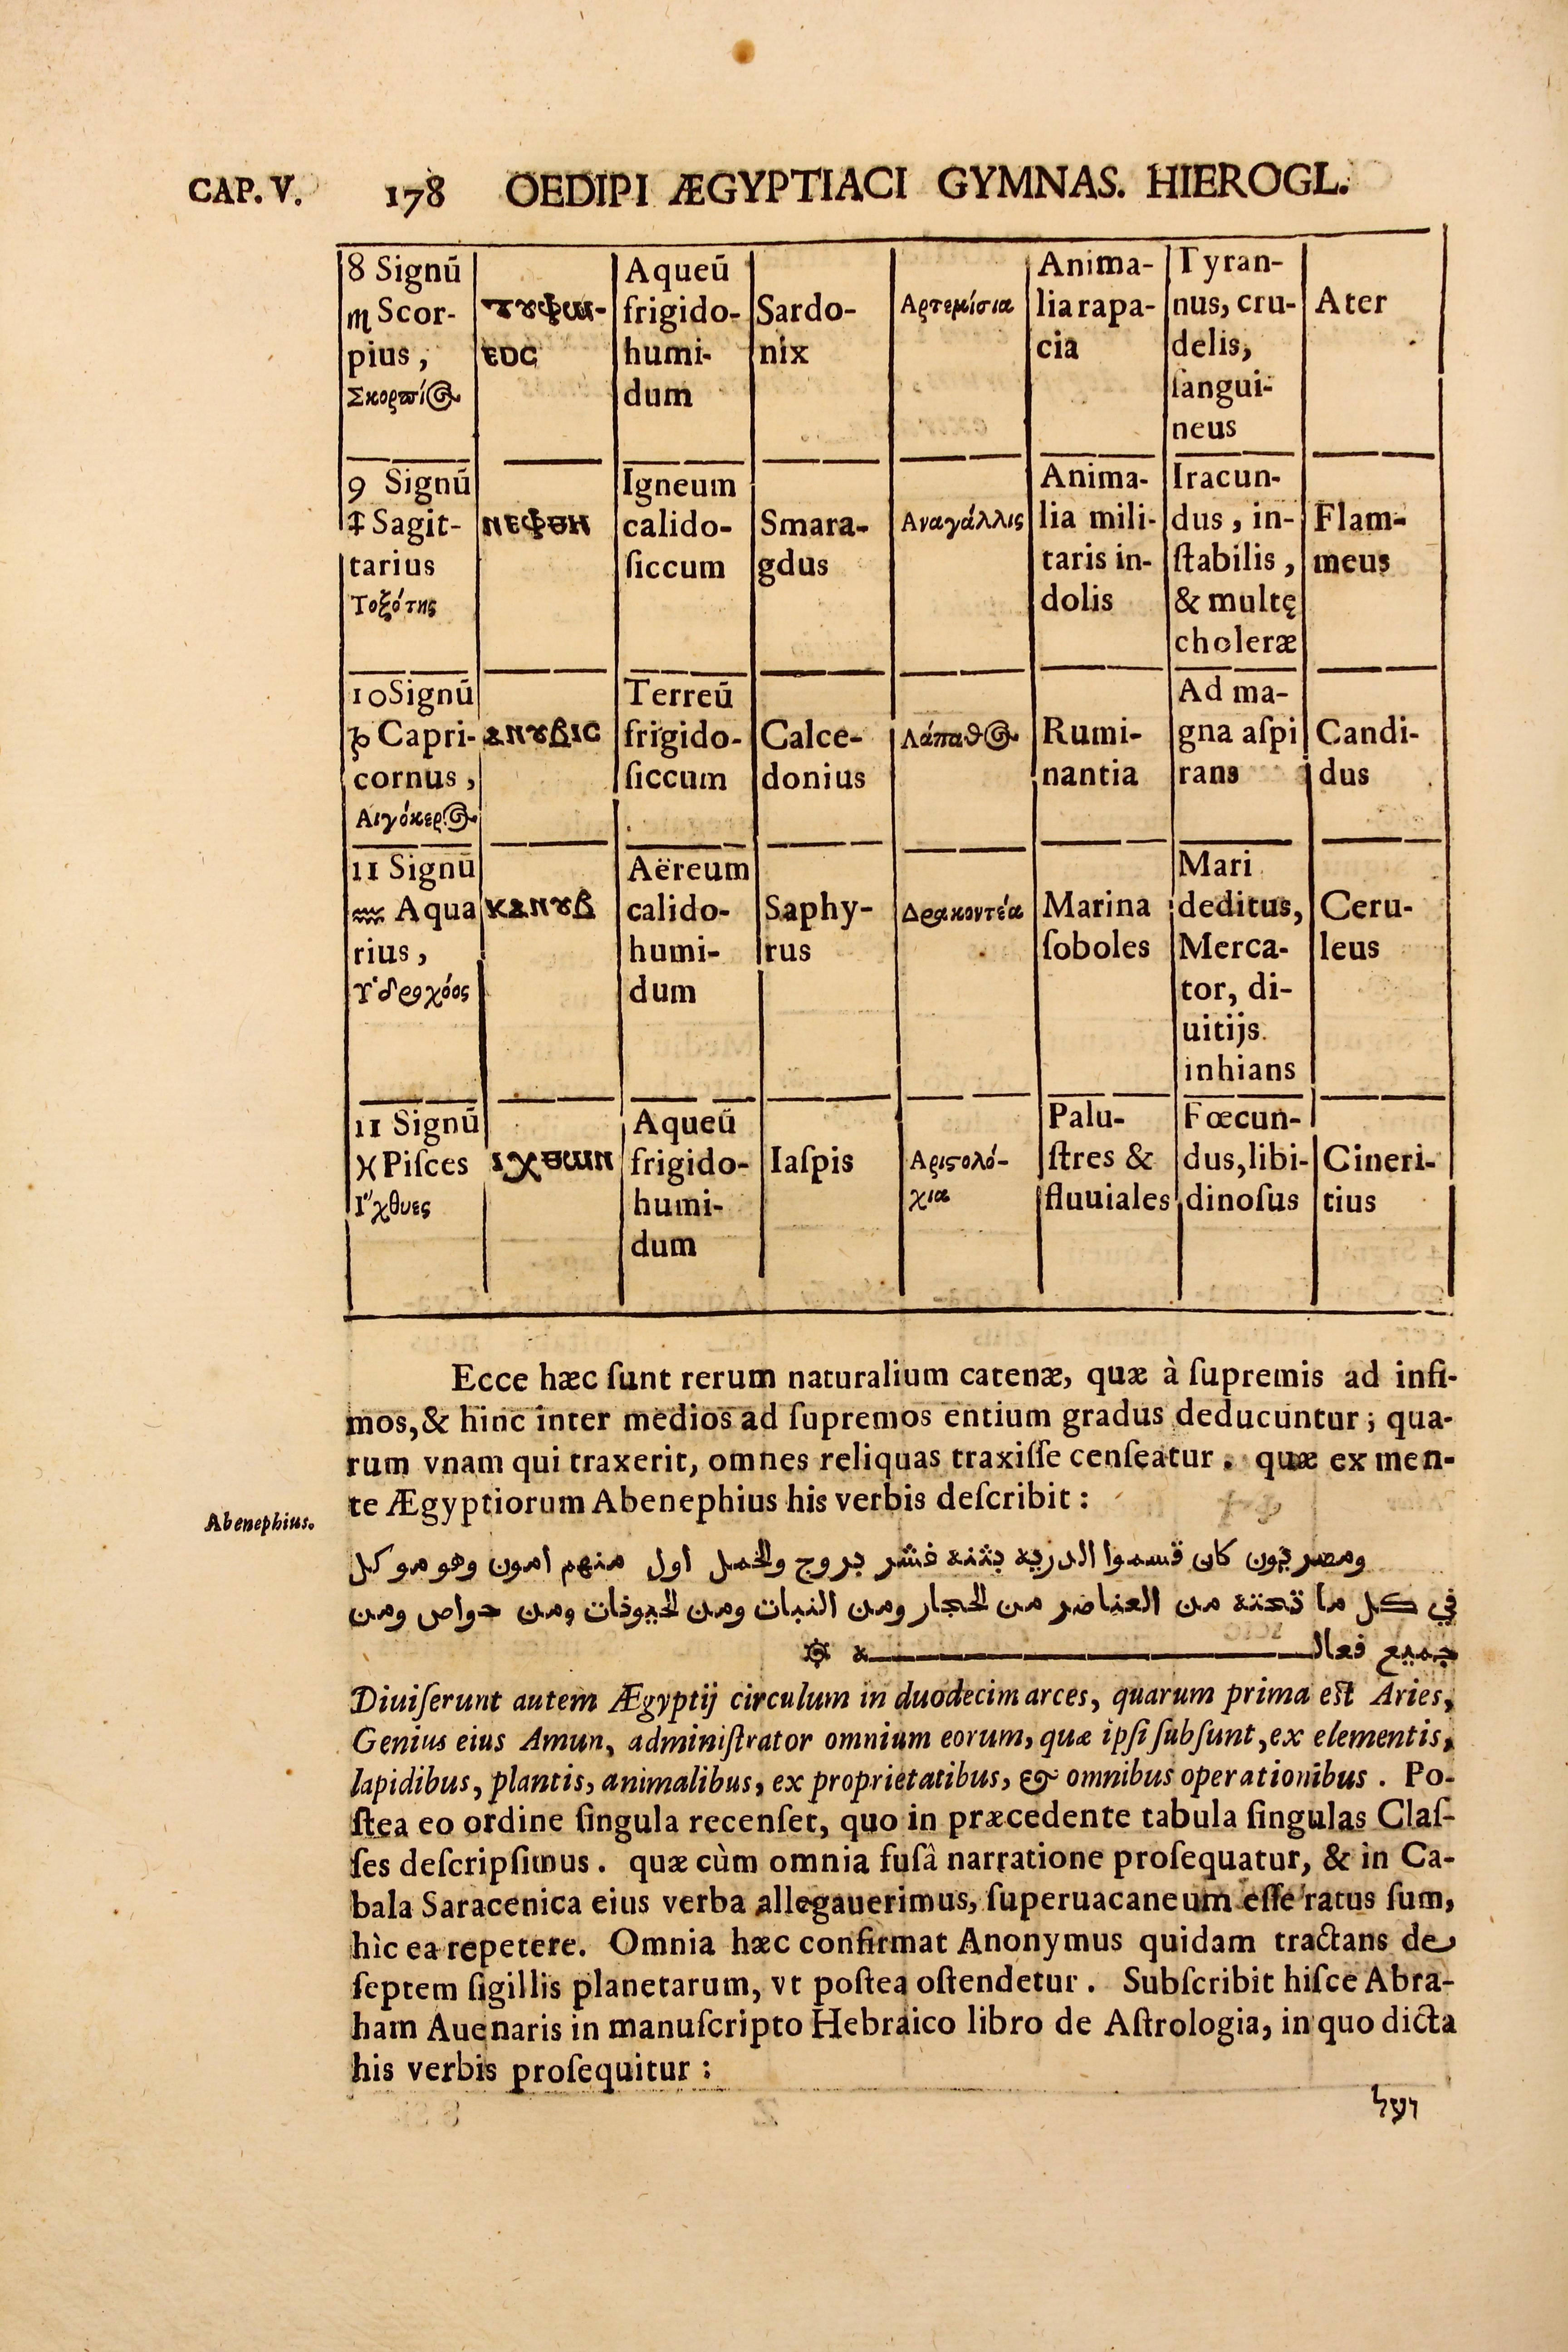 CAP. V. 178 OEDIPI ÆGYPTIACI GYMNAS. HIEROGL.
8 Signū
♏ Scor-
pius,
Σκορπίος
ⲧⲩⲫⲱⲛ-
ⲉⲟⲥ
Aqueū
frigido-
humi-
dum
Sardo-
nix
Αρτεμίσια
Anima-
lia rapa-
cia
Tyran-
nus, cru-
delis,
ſangui-
neus
Ater
9 Signū
♐ Sagit-
tarius
Τοξότης
ⲛⲉⲫⲑⲏ
Igneum
calido-
ſiccum
Smara-
gdus
Αναγάλλις
Anima-
lia mili-
taris in-
dolis
Iracun-
dus, in-
ſtabilis,
& multę
choleræ
Flam-
meus
10 Signū
♑ Capri-
cornus,
Αιγόκερος
ⲁⲛⲩⲃⲓⲥ
Terreū
frigido-
ſiccum
Calce-
donius
Λάπαθος
Rumi-
nantia
Ad ma-
gna aſpi
rans
Candi-
dus
11 Signū
♒ Aqua
rius,
Ὑδροχόος
ⲕⲁⲛⲩⲃ
Aëreum
calido-
humi-
dum
Saphy-
rus
Δρακοντέα
Marina
ſoboles
Mari
deditus,
Merca-
tor, di-
uitijs
inhians
Ceru-
leus
11 Signū
♓ Piſces
Ἴχθυες
ⲓⲭⲑⲱⲛ
Aqueū
frigido-
humi-
dum
Iaſpis
Αριϛολό-
χια
Palu-
ſtres &
fluuiales
Fœcun-
dus, libi-
dinoſus
Cineri-
tius
Ecce hæc ſunt rerum naturalium catenæ, quæ à ſupremis ad infi-
mos, & hinc inter medios ad ſupremos entium gradus deducuntur; qua-
rum vnam qui traxerit, omnes reliquas traxiſſe cenſeatur. quæ ex men-
te Ægyptiorum Abenephius his verbis deſcribit:
Abenephius.
ومصريون كان قسموا الدريه بثنه فشر بروج والخمل اول منهم امون وهو موكل
في كل ما تحته من العناضر من الحجار ومن النبات ومن الحيوذات ومن حواص ومن
جميع فعاله
Diuiſerunt autem Ægyptij circulum in duodecim arces, quarum prima eſt Aries,
Genius eius Amun, adminiſtrator omnium eorum, quæ ipſi ſubſunt, ex elementis,
lapidibus, plantis, animalibus, ex proprietatibus, & omnibus operationibus. Po-
ſtea eo ordine ſingula recenſet, quo in præcedente tabula ſingulas Claſ-
ſes deſcripſimus. quæ cùm omnia fuſâ narratione proſequatur, & in Ca-
bala Saracenica eius verba allegauerimus, ſuperuacaneum eſſe ratus ſum,
hìc ea repetere. Omnia hæc confirmat Anonymus quidam tractans de
ſeptem ſigillis planetarum, vt poſtea oſtendetur. Subſcribit hiſce Abra-
ham Auenaris in manuſcripto Hebraico libro de Aſtrologia, in quo dicta
his verbis proſequitur:
ועל